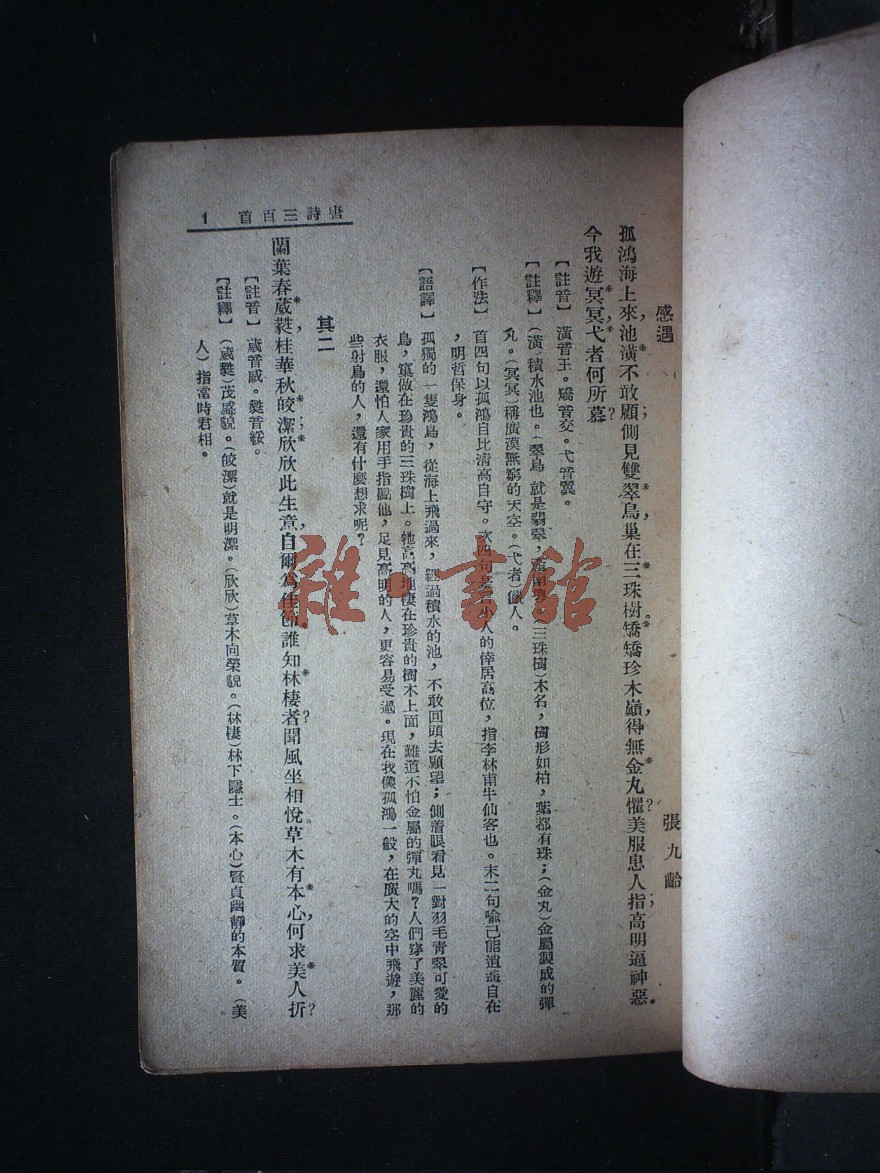 唐詩三百首 1
感遇 張九齡
孤鴻海上來，池潢不敢顧；側見雙翠鳥，巢在三珠樹。矯矯珍木巔，得無金丸懼？美服患人指，高明逼神惡。
今我遊冥冥，弋者何所慕？
【註音】潢音王。矯音交。弋音翼。
【註釋】（潢）積水池也。（翠鳥）就是翡翠，（三珠樹）木名，樹形如柏，葉都有珠；（金丸）金屬製成的彈
丸。（冥冥）稱廣漠無窮的天空。（弋者）獵人。
【作法】首四句以孤鴻自比清高自守。次四句是小人的倖居高位，指李林甫牛仙客也。末二句喻己能逍遙自在
，明哲保身。
【語譯】孤獨的一隻鴻鳥，從海上飛過來，經過積水的池，不敢回頭去顧望；側着眼看見一對羽毛青翠可愛的
鳥，窠做在珍貴的三珠樹上。牠高高地棲在珍貴的樹木上面，難道不怕金屬的彈丸嗎？人們穿了美麗的
衣服，還怕人家用手指點他，足見高明的人，更容易受過。現在我像孤鴻一般，在廣大的空中飛遊，那
些射鳥的人，還有什麼想求呢？
其二
蘭葉春葳蕤，桂華秋皎潔；欣欣此生意，自爾為佳節。誰知林棲者？聞風坐相悅。草木有本心，何求美人折？
【註音】葳音威。蕤音綏。
【註釋】（葳蕤）茂盛貌。（皎潔）就是明潔。（欣欣）草木向榮貌。（林棲）林下隱士。（本心）賢貞幽靜的本質。（美
人）指當時君相。
雜·書館